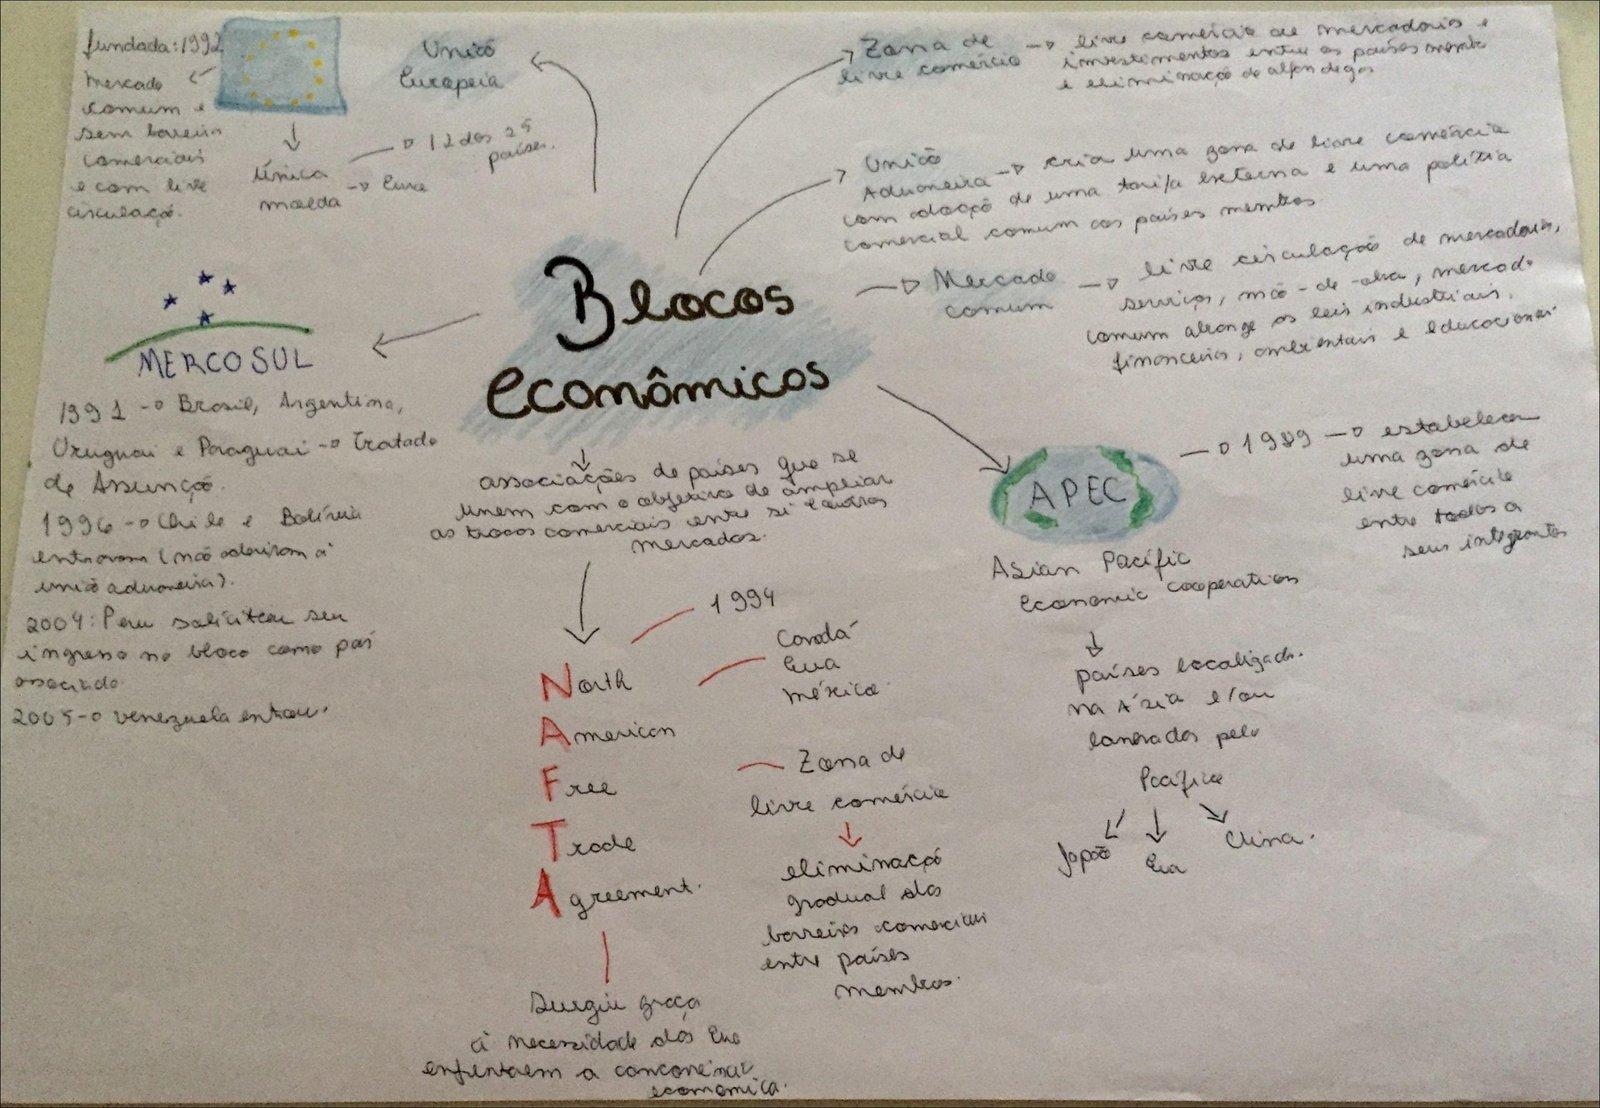 Blocos
econômicos
associações de países que se
unem com o objetivo de ampliar
as trocas comerciais entre si e outros
mercados.
União
Europeia
fundada: 1992
mercado
comum e
sem barreiras
comerciais
e com livre
circulação.
Única
moeda
12 dos 25
países.
Euro
Zona de
livre comércio
livre comércio de mercadorias e
investimentos entre os países
e eliminação de alfandegas
União
Aduaneira
cria uma zona de livre comércio
com adoção de uma tarifa externa e uma política
comercial comum aos países membros
Mercado
comum
livre circulação de mercadorias,
serviços, mão-de-obra, mercado
comum abrange as leis industriais.
financeiras, ambientais e educacionais
MERCOSUL
1991 Brasil, Argentina,
Uruguai e Paraguai Tratado
de Assunção.
1996 Chile e Bolívia
entraram (não aderiram à
união aduaneira).
2004: Peru solicitou seu
ingresso no bloco como país
associado
2005 Venezuela entrou.
APEC
1989
estabelecer
uma zona de
livre comércio
entre todos os
seus integrantes
Asian Pacific
economic cooperation
países localizado.
na Ásia e/ou
banhados pelo
Pacífico
Japão
Eua
China.
North
American
Free
Trade
Agreement.
1994
Canadá
Eua
méxico
Zona de
livre comércio
eliminação
gradual das
barreiras comerciais
entre países
membros.
Surgiu graça
à necessidade dos Eua
enfrentarem a concorrência
economica.